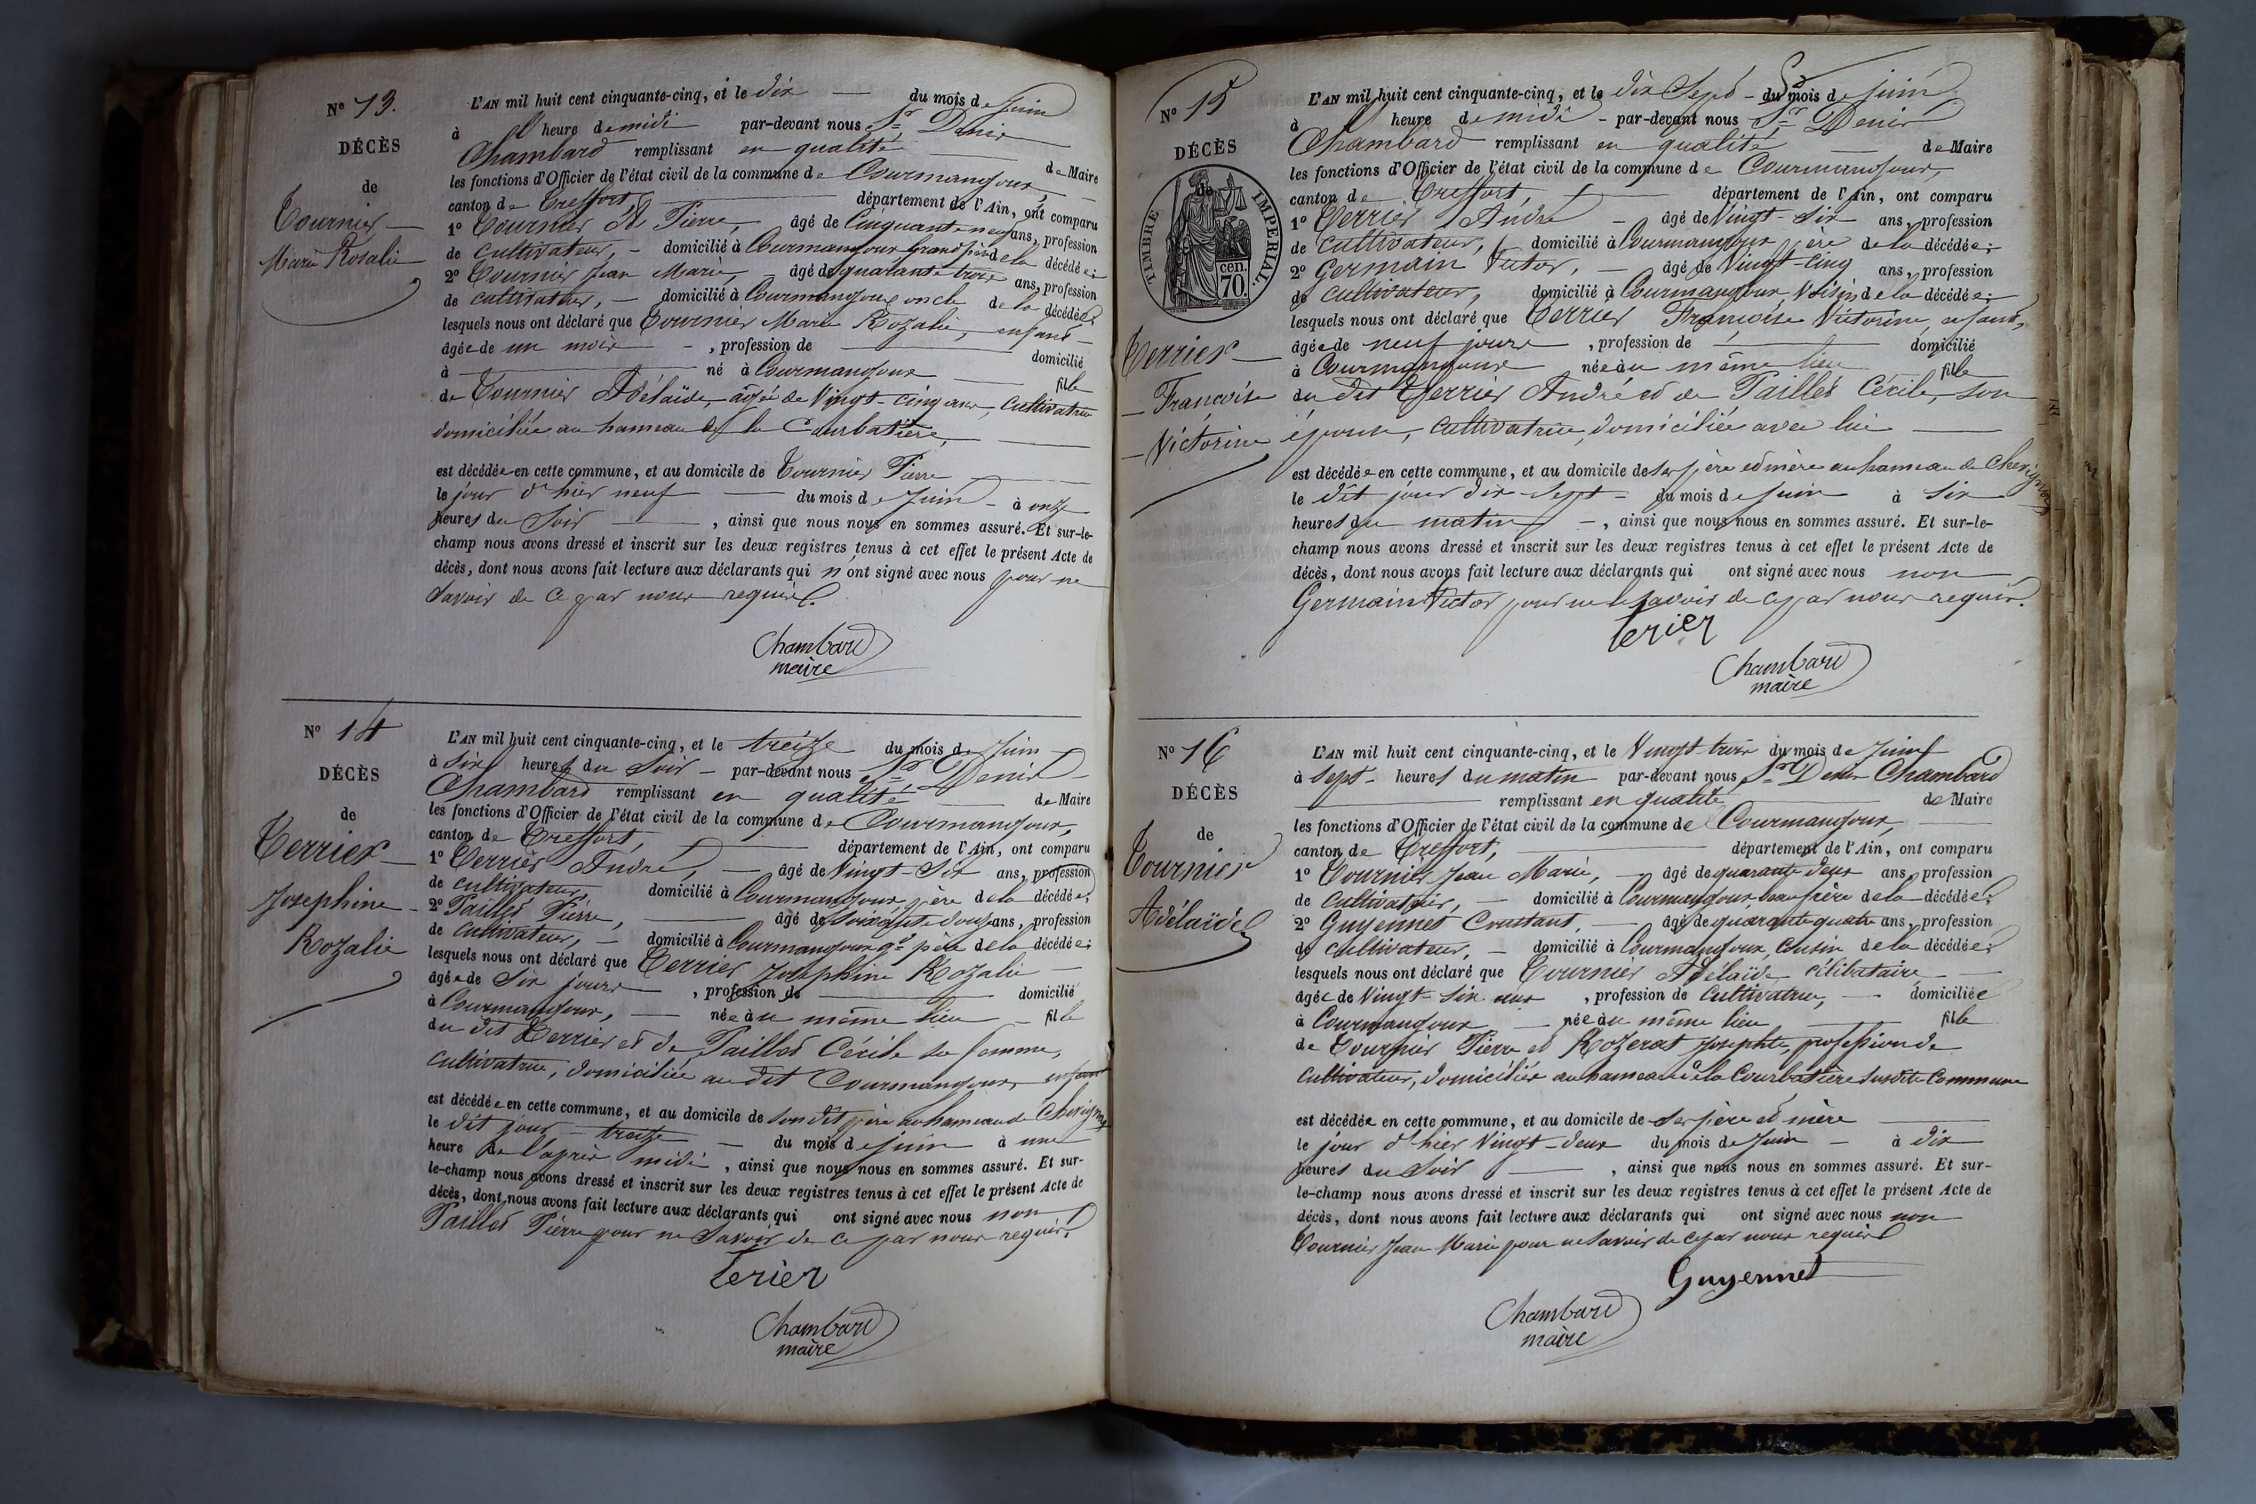 N° 13.
DÉCÈS
de
Tournier
Marie Rosalie
L'AN mil huit cent cinquante-cinq, et le dix du mois de Juin
à l'heure de midi par-devant nous Sr Denis
Chambard remplissant en qualité de Maire
les fonctions d'Officier de l'état civil de la commune de Courmangoux,
canton de Treffort, département de l'Ain, ont comparu
1° Tournier Pierre, âgé de Cinquante neuf ans, profession
de cultivateur, domicilié à Courmangoux grand père de la décédée;
2° Tournier Jean Marie, âgé de quarante trois ans, profession
de cultivateur, domicilié à Courmangoux oncle de la décédée;
lesquels nous ont déclaré que Tournier Marie Rozalie, enfant
âgée de un mois, profession de domicilié
à né à Courmangoux fille
de Tournier Adélaïde, âgée de Vingt-cinq ans, cultivatrice
domiciliée au hameau de la Courbatière,
est décédée en cette commune, et au domicile de Tournier Pierre
le jour d'hier neuf du mois de Juin à onze
heures du Soir, ainsi que nous nous en sommes assuré. Et sur-le-
champ nous avons dressé et inscrit sur les deux registres tenus à cet effet le présent Acte de
décès, dont nous avons fait lecture aux déclarants qui n'ont signé avec nous pour ne
Savoir de ce par nous requis.
Chambard
maire
N° 14
DÉCÈS
de
Terrier
Josephine
Rozalie
L'AN mil huit cent cinquante-cinq, et le treize du mois de Juin
à Six heures du Soir par-devant nous Sr Denis
Chambard remplissant en qualité de Maire
les fonctions d'Officier de l'état civil de la commune de Courmangoux,
canton de Treffort, département de l'Ain, ont comparu
1° Terrier André, âgé de Vingt-Six ans, profession
de cultivateur, domicilié à Courmangoux père de la décédée;
2° Paillod Pierre, âgé de Soixante douze ans, profession
de cultivateur, domicilié à Courmangoux gd père de la décédée;
lesquels nous ont déclaré que Terrier Josephine Rozalie
âgée de Six jours, profession de domicilié
à Courmangoux, née au même lieu fille
du dit Terrier et de Paillod Cécile sa femme,
cultivatrice, domiciliée au dit Courmangoux, enfant
est décédée en cette commune, et au domicile de Son dit père au hameau de Chevignat
le dit jour treize du mois de juin à une
heure de l'après midi, ainsi que nous nous en sommes assuré. Et sur-
le-champ nous avons dressé et inscrit sur les deux registres tenus à cet effet le présent Acte de
décès, dont nous avons fait lecture aux déclarants qui ont signé avec nous non
Paillod Pierre pour ne Savoir de ce par nous requis.
Terier
Chambard
maire
N° 15
DÉCÈS
de
TIMBRE IMPERIAL.
cen.
70
Terrier
Françoise
Victorine
L'AN mil huit cent cinquante-cinq, et le dix Sept du mois de juin
à l'heure de midi par-devant nous Sr Denis
Chambard remplissant en qualité de Maire
les fonctions d'Officier de l'état civil de la commune de Courmangoux,
canton de Treffort, département de l'Ain, ont comparu
1° Terrier André âgé de Vingt-Six ans, profession
de cultivateur, domicilié à Courmangoux père de la décédée;
2° Germain Victor, âgé de Vingt-cinq ans, profession
de cultivateur, domicilié à Courmangoux, Voisin de la décédée;
lesquels nous ont déclaré que Terrier Françoise Victorine, enfant,
âgée de neuf jours, profession de domicilié
à Courmangoux née au même lieu fille
du dit Terrier André et de Paillod Cécile, son
épouse, cultivatrice, domiciliée avec lui
est décédée en cette commune, et au domicile de ses père et mère au hameau de Chevignat
le dit jour dix Sept du mois de juin à Six
heures du matin, ainsi que nous nous en sommes assuré. Et sur-le-
champ nous avons dressé et inscrit sur les deux registres tenus à cet effet le présent Acte de
décès, dont nous avons fait lecture aux déclarants qui ont signé avec nous non
Germain Victor pour ne le Savoir de ce par nous requis.
Terier
Chambard
maire
N° 16
DÉCÈS
de
Tournier
Adélaïde
L'AN mil huit cent cinquante-cinq, et le Vingt-trois du mois de Juin
à Sept heures du matin par-devant nous Sr Denis Chambard
remplissant en qualité de Maire
les fonctions d'Officier de l'état civil de la commune de Courmangoux,
canton de Treffort, département de l'Ain, ont comparu
1° Tournier Jean Marie, âgé de quarante deux ans, profession
de cultivateur, domicilié à Courmangoux beau frère de la décédée;
2° Guyennet Constant, âgé de quarante quatre ans, profession
de cultivateur, domicilié à Courmangoux, Cousin de la décédée;
lesquels nous ont déclaré que Tournier Adélaïde célibataire
âgée de Vingt-Six ans, profession de cultivatrice, domiciliée
à Courmangoux née au même lieu fille
de Tournier Pierre et Rozerat Josephte, profession de
cultivateurs, domiciliés au hameau de la Courbatière susdite Commune
est décédée en cette commune, et au domicile de Ses père et mère
le jour d'hier Vingt-deux du mois de Juin à dix
heures du Soir, ainsi que nous nous en sommes assuré. Et sur-
le-champ nous avons dressé et inscrit sur les deux registres tenus à cet effet le présent Acte de
décès, dont nous avons fait lecture aux déclarants qui ont signé avec nous non
Tournier Jean Marie pour ne Savoir de ce par nous requis
Guyennet
Chambard
maire